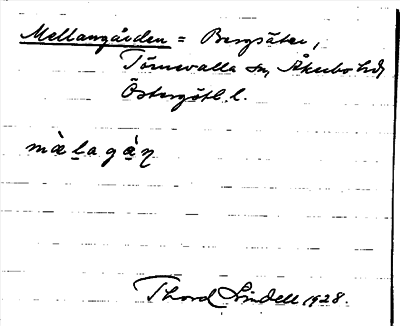 Mellangården = Bergsäter,
Törnevalla sn, Åkerbo hd,
Östergötl. l.
mæ̀lagá̱ṇ
Thord Lindell 1928.